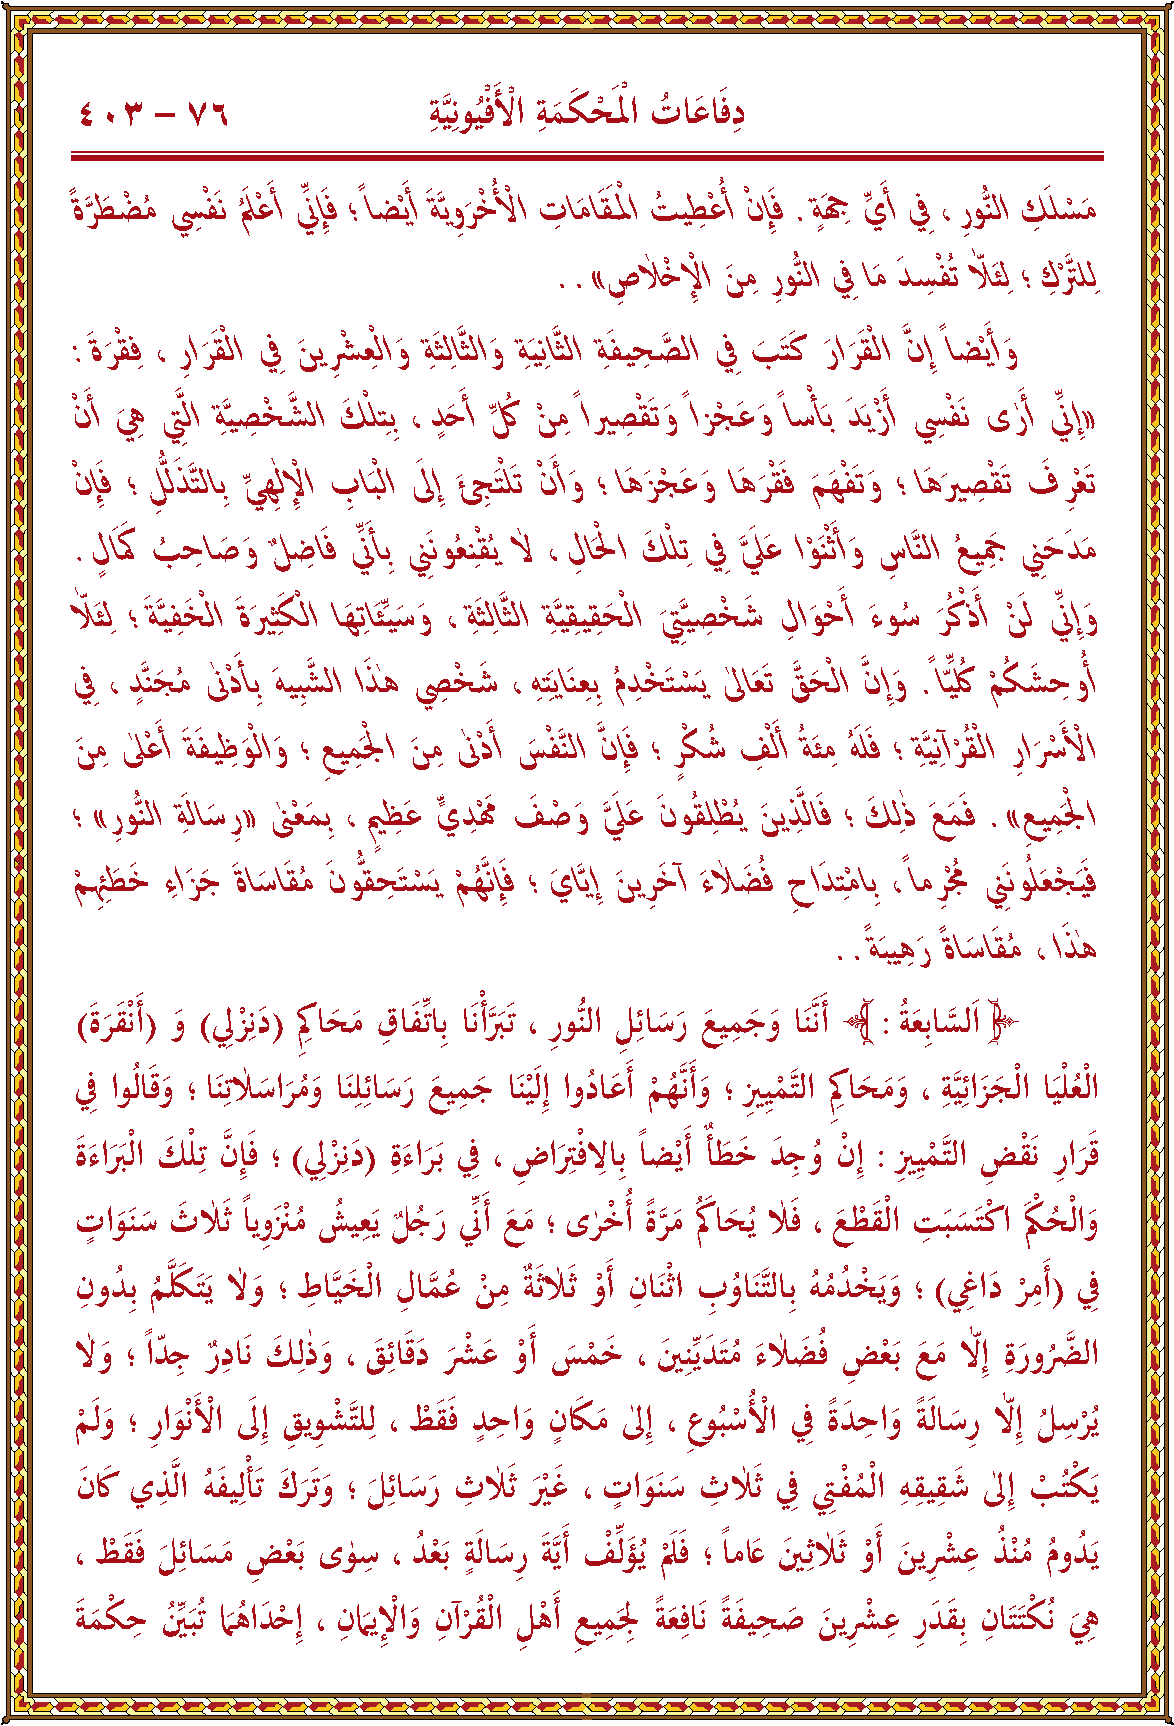 دِفَاعَاتُ الْمَحْكَمَةِ الْأَفْيُونِيَّةِ ٧٦ – ٤٠٣
مَسْلَكِ النُّورِ ، فِي أَيِّ جِهَةٍ . فَإِنْ أُعْطِيتُ الْمَقَامَاتِ الْأُخْرَوِيَّةَ أَيْضاً ؛ فَإِنِّي أَعْلَمُ نَفْسِي مُضْطَرَّةً
لِلتَّرْكِ ؛ لِئَلَّا تُفْسِدَ مَا فِي النُّورِ مِنَ الْإِخْلَاصِ» . .
وَأَيْضاً إِنَّ الْقَرَارَ كَتَبَ فِي الصَّحِيفَةِ الثَّانِيَةِ وَالثَّالِثَةِ وَالْعِشْرِينَ فِي الْقَرَارِ ، فِقْرَةَ :
«إِنِّي أَرٰى نَفْسِي أَزْيَدَ بَأْساً وَعَجْزاً وَتَقْصِيراً مِنْ كُلِّ أَحَدٍ ، بِتِلْكَ الشَّخْصِيَّةِ الَّتِي هِيَ أَنْ
تَعْرِفَ تَقْصِيرَهَا ؛ وَتَفْهَمَ فَقْرَهَا وَعَجْزَهَا ؛ وَأَنْ تَلْتَجِئَ إِلَى الْبَابِ الْإِلٰهِيِّ بِالتَّذَلُّلِ ؛ فَإِنْ
مَدَحَنِي جَمِيعُ النَّاسِ وَأَثْنَوْا عَلَيَّ فِي تِلْكَ الْحَالِ ، لَا يُقْنِعُونَنِي بِأَنِّي فَاضِلٌ وَصَاحِبُ كَمَالٍ .
وَإِنِّي لَنْ أَذْكُرَ سُوءَ أَحْوَالِ شَخْصِيَّتِيَ الْحَقِيقِيَّةِ الثَّالِثَةِ ، وَسَيِّئَاتِهَا الْكَثِيرَةَ الْخَفِيَّةَ ؛ لِئَلَّا
أُوحِشَكُمْ كُلِّيّاً . وَإِنَّ الْحَقَّ تَعَالٰى يَسْتَخْدِمُ بِعِنَايَتِهِ ، شَخْصِي هٰذَا الشَّبِيهَ بِأَدْنٰى مُجَنَّدٍ ، فِي
الْأَسْرَارِ الْقُرْآنِيَّةِ ؛ فَلَهُ مِئَةُ أَلْفِ شُكْرٍ ؛ فَإِنَّ النَّفْسَ أَدْنٰى مِنَ الْجَمِيعِ ؛ وَالْوَظِيفَةَ أَعْلٰى مِنَ
الْجَمِيعِ» . فَمَعَ ذٰلِكَ ؛ فَالَّذِينَ يُطْلِقُونَ عَلَيَّ وَصْفَ مَهْدِيٍّ عَظِيمٍ ، بِمَعْنٰى «رِسَالَةِ النُّورِ» ؛
فَيَجْعَلُونَنِي مُجْرِماً ، بِامْتِدَاحِ فُضَلَاءَ آخَرِينَ إِيَّايَ ؛ فَإِنَّهُمْ يَسْتَحِقُّونَ مُقَاسَاةَ جَزَاءِ خَطَئِهِمْ
هٰذَا ، مُقَاسَاةً رَهِيبَةً . .
﴿ اَلسَّابِعَةُ : ﴾ أَنَّنَا وَجَمِيعَ رَسَائِلِ النُّورِ ، تَبَرَّأْنَا بِاتِّفَاقِ مَحَاكِمِ (دَنِزْلِي) وَ (أَنْقَرَةَ)
الْعُلْيَا الْجَزَائِيَّةِ ، وَمَحَاكِمِ التَّمْيِيزِ ؛ وَأَنَّهُمْ أَعَادُوا إِلَيْنَا جَمِيعَ رَسَائِلِنَا وَمُرَاسَلَاتِنَا ؛ وَقَالُوا فِي
قَرَارِ نَقْضِ التَّمْيِيزِ : إِنْ وُجِدَ خَطَأٌ أَيْضاً بِالِافْتِرَاضِ ، فِي بَرَاءَةِ (دَنِزْلِي) ؛ فَإِنَّ تِلْكَ الْبَرَاءَةَ
وَالْحُكْمَ اكْتَسَبَتِ الْقَطْعَ ، فَلَا يُحَاكَمُ مَرَّةً أُخْرٰى ؛ مَعَ أَنِّي رَجُلٌ يَعِيشُ مُنْزَوِياً ثَلَاثَ سَنَوَاتٍ
فِي (أَمِرْ دَاغِي) ؛ وَيَخْدُمُهُ بِالتَّنَاوُبِ اثْنَانِ أَوْ ثَلَاثَةٌ مِنْ عُمَّالِ الْخَيَّاطِ ؛ وَلَا يَتَكَلَّمُ بِدُونِ
الضَّرُورَةِ إِلَّا مَعَ بَعْضِ فُضَلَاءَ مُتَدَيِّنِينَ ، خَمْسَ أَوْ عَشْرَ دَقَائِقَ ، وَذٰلِكَ نَادِرٌ جِدّاً ؛ وَلَا
يُرْسِلُ إِلَّا رِسَالَةً وَاحِدَةً فِي الْأُسْبُوعِ ، إِلٰى مَكَانٍ وَاحِدٍ فَقَطْ ، لِلتَّشْوِيقِ إِلَى الْأَنْوَارِ ؛ وَلَمْ
يَكْتُبْ إِلٰى شَقِيقِهِ الْمُفْتِي فِي ثَلَاثِ سَنَوَاتٍ ، غَيْرَ ثَلَاثِ رَسَائِلَ ؛ وَتَرَكَ تَأْلِيفَهُ الَّذِي كَانَ
يَدُومُ مُنْذُ عِشْرِينَ أَوْ ثَلَاثِينَ عَاماً ؛ فَلَمْ يُؤَلِّفْ أَيَّةَ رِسَالَةٍ بَعْدُ ، سِوٰى بَعْضِ مَسَائِلَ فَقَطْ ،
هِيَ نُكْتَتَانِ بِقَدَرِ عِشْرِينَ صَحِيفَةً نَافِعَةً لِجَمِيعِ أَهْلِ الْقُرْآنِ وَالْإِيمَانِ ، إِحْدَاهُمَا تُبَيِّنُ حِكْمَةَ